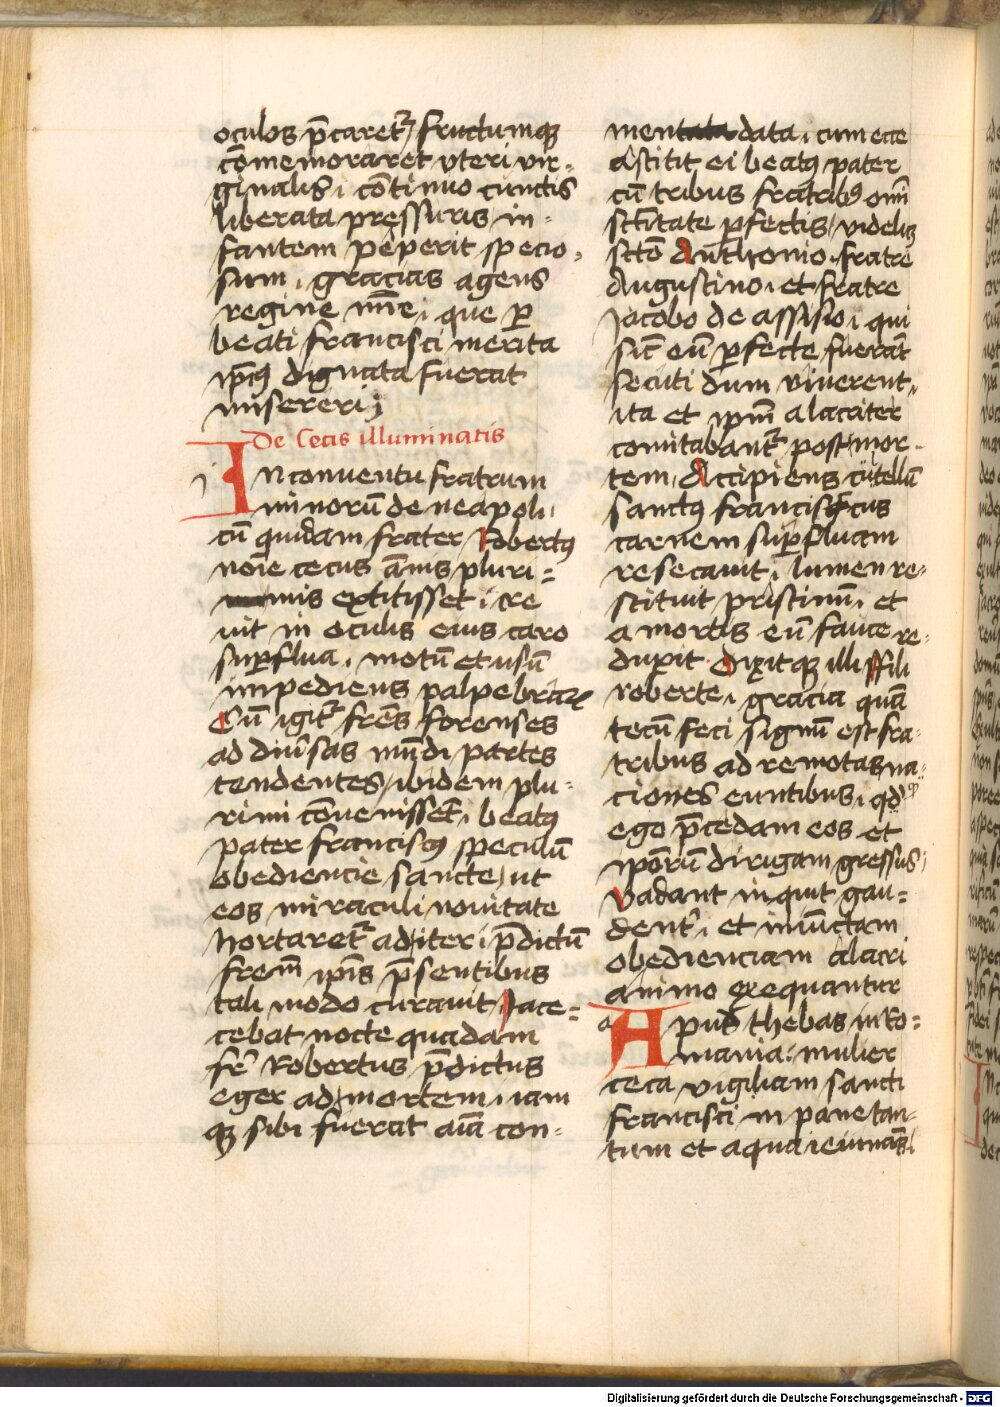 oculos p̄caret᷑, fructumqꝫ
co̅memoraret vteri vir-
ginalis, co̅tinuo cunctis
liberata pressuris, in-
fantem peperit specio-
sum, gracias agens
regine nr̄e, que ꝑ
beati francisci merita
ip̄iꝰ dignata fuerat
misereri
De Cecis illuminatis
In conuentu fratrum
minorū de neapoli,
cū quidam frater Robertꝰ
noīe cecus ānis pluri=
mis extitisset, cre
uit in oculis eius caro
suꝑflua, motū et usū
impediens palpebraꝝ
Cū igit᷑ fr̄es forenses
ad diu̅sas mūdi partes
tendentes, ibidem plu-
rimi co̅uenisset, beatꝰ
pater franciscꝰ speculū
obediencie sancte, ut
eos miraculi nouitate
hortaret᷑ ad iter, p̄dictū
frem̄ ip̄is p̄sentibus
tali modo curauit Jace=
cebat nocte quadam
fr̄ Robertus p̄dictus
eger ad mortem, iam
qꝫ sibi fuerat aīa con-
mendata, cum ecce
astitit ei beatꝰ pater
cū tribus fratribꝰ om̄i
sc̄titate ꝑfectis, videlꝫ
sc̄to Anthonio, fratre
Augustino, et fratre
Jacobo de assisio, qui
sic̄ eū ꝑfecte fuerāt
secuti dum viuerent,
ita et ip̄m alacriter
comitabant᷑ post mor-
tem, Accipiens cūtellū
sanctꝰ franciscus
carnem suꝑfluam
resecauit, lumen re-
stituit pristinū, et
a mortis eū fauce re-
duxit Dixitqꝫ illi Fili
roberte, gracia quā
tecū feci signū est fra-
tribus ad remotas na-
ciones euntibus, qd̄
ego p̄cedam eos et
ip̄orū dirigam gressus,
Vadant inquit gau=
dent᷑, et iniūctam
obedienciam alacri
animo exequantur
Apud thebas in Ro=
mania: mulier
ceca vigiliam sancti
francisci in pane tan-
tum et aqua ieiunās
Digitalisierung gefördert durch die Deutsche Forschungsgemeinschaft - DFG